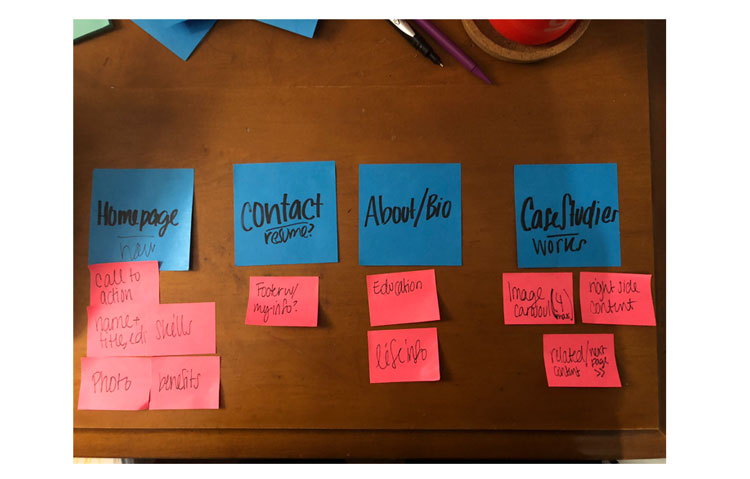 Homepage
nav
call to
action
name +
title, edu
skills
Photo
benefits
Contact
resume?
Footer w/
my info?
About/Bio
Education
life info
Case Studies
works
Image
(4
max)
right side
content
related/
content
next
page
>>